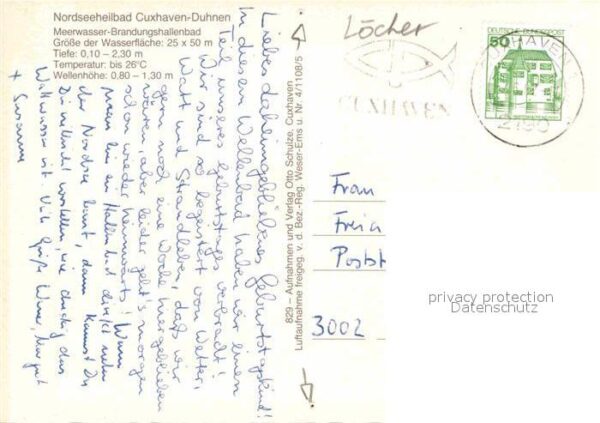 Nordseeheilbad Cuxhaven-Duhnen
Meerwasser-Brandungshallenbad
Größe der Wasserfläche: 25 x 50 m
Tiefe: 0,10 – 2,30 m
Temperatur: bis 26°C
Wellenhöhe: 0,80 – 1,30 m
Liebes daheimgebliebenes Geburtstagskind!
In diesem Wellenbad haben wir einen
Teil unseres Geburtstages verbracht!
Wir sind so begeistert von Wetter,
Watt und Strandleben, daß wir
gern noch eine Woche hiergeblieben
wären, aber leider geht's morgen
schon wieder heimwärts! Wenn
man in ein Hallenbad direkt neben
der Nordsee baut, dann kannst Du
Dir vielleicht vorstellen, wie
Viele Grüße
+ Susanne
829 – Aufnahmen und Verlag Otto Schulze, Cuxhaven
Luftaufnahme freigeg. v. d. Bez.-Reg. Weser-Ems u. Nr. 4/1108/5
Löcher
CUXHAVEN
CUXHAVEN 1
2190
DEUTSCHE BUNDESPOST
50
Frau
Postst
3002
privacy protection
Datenschutz